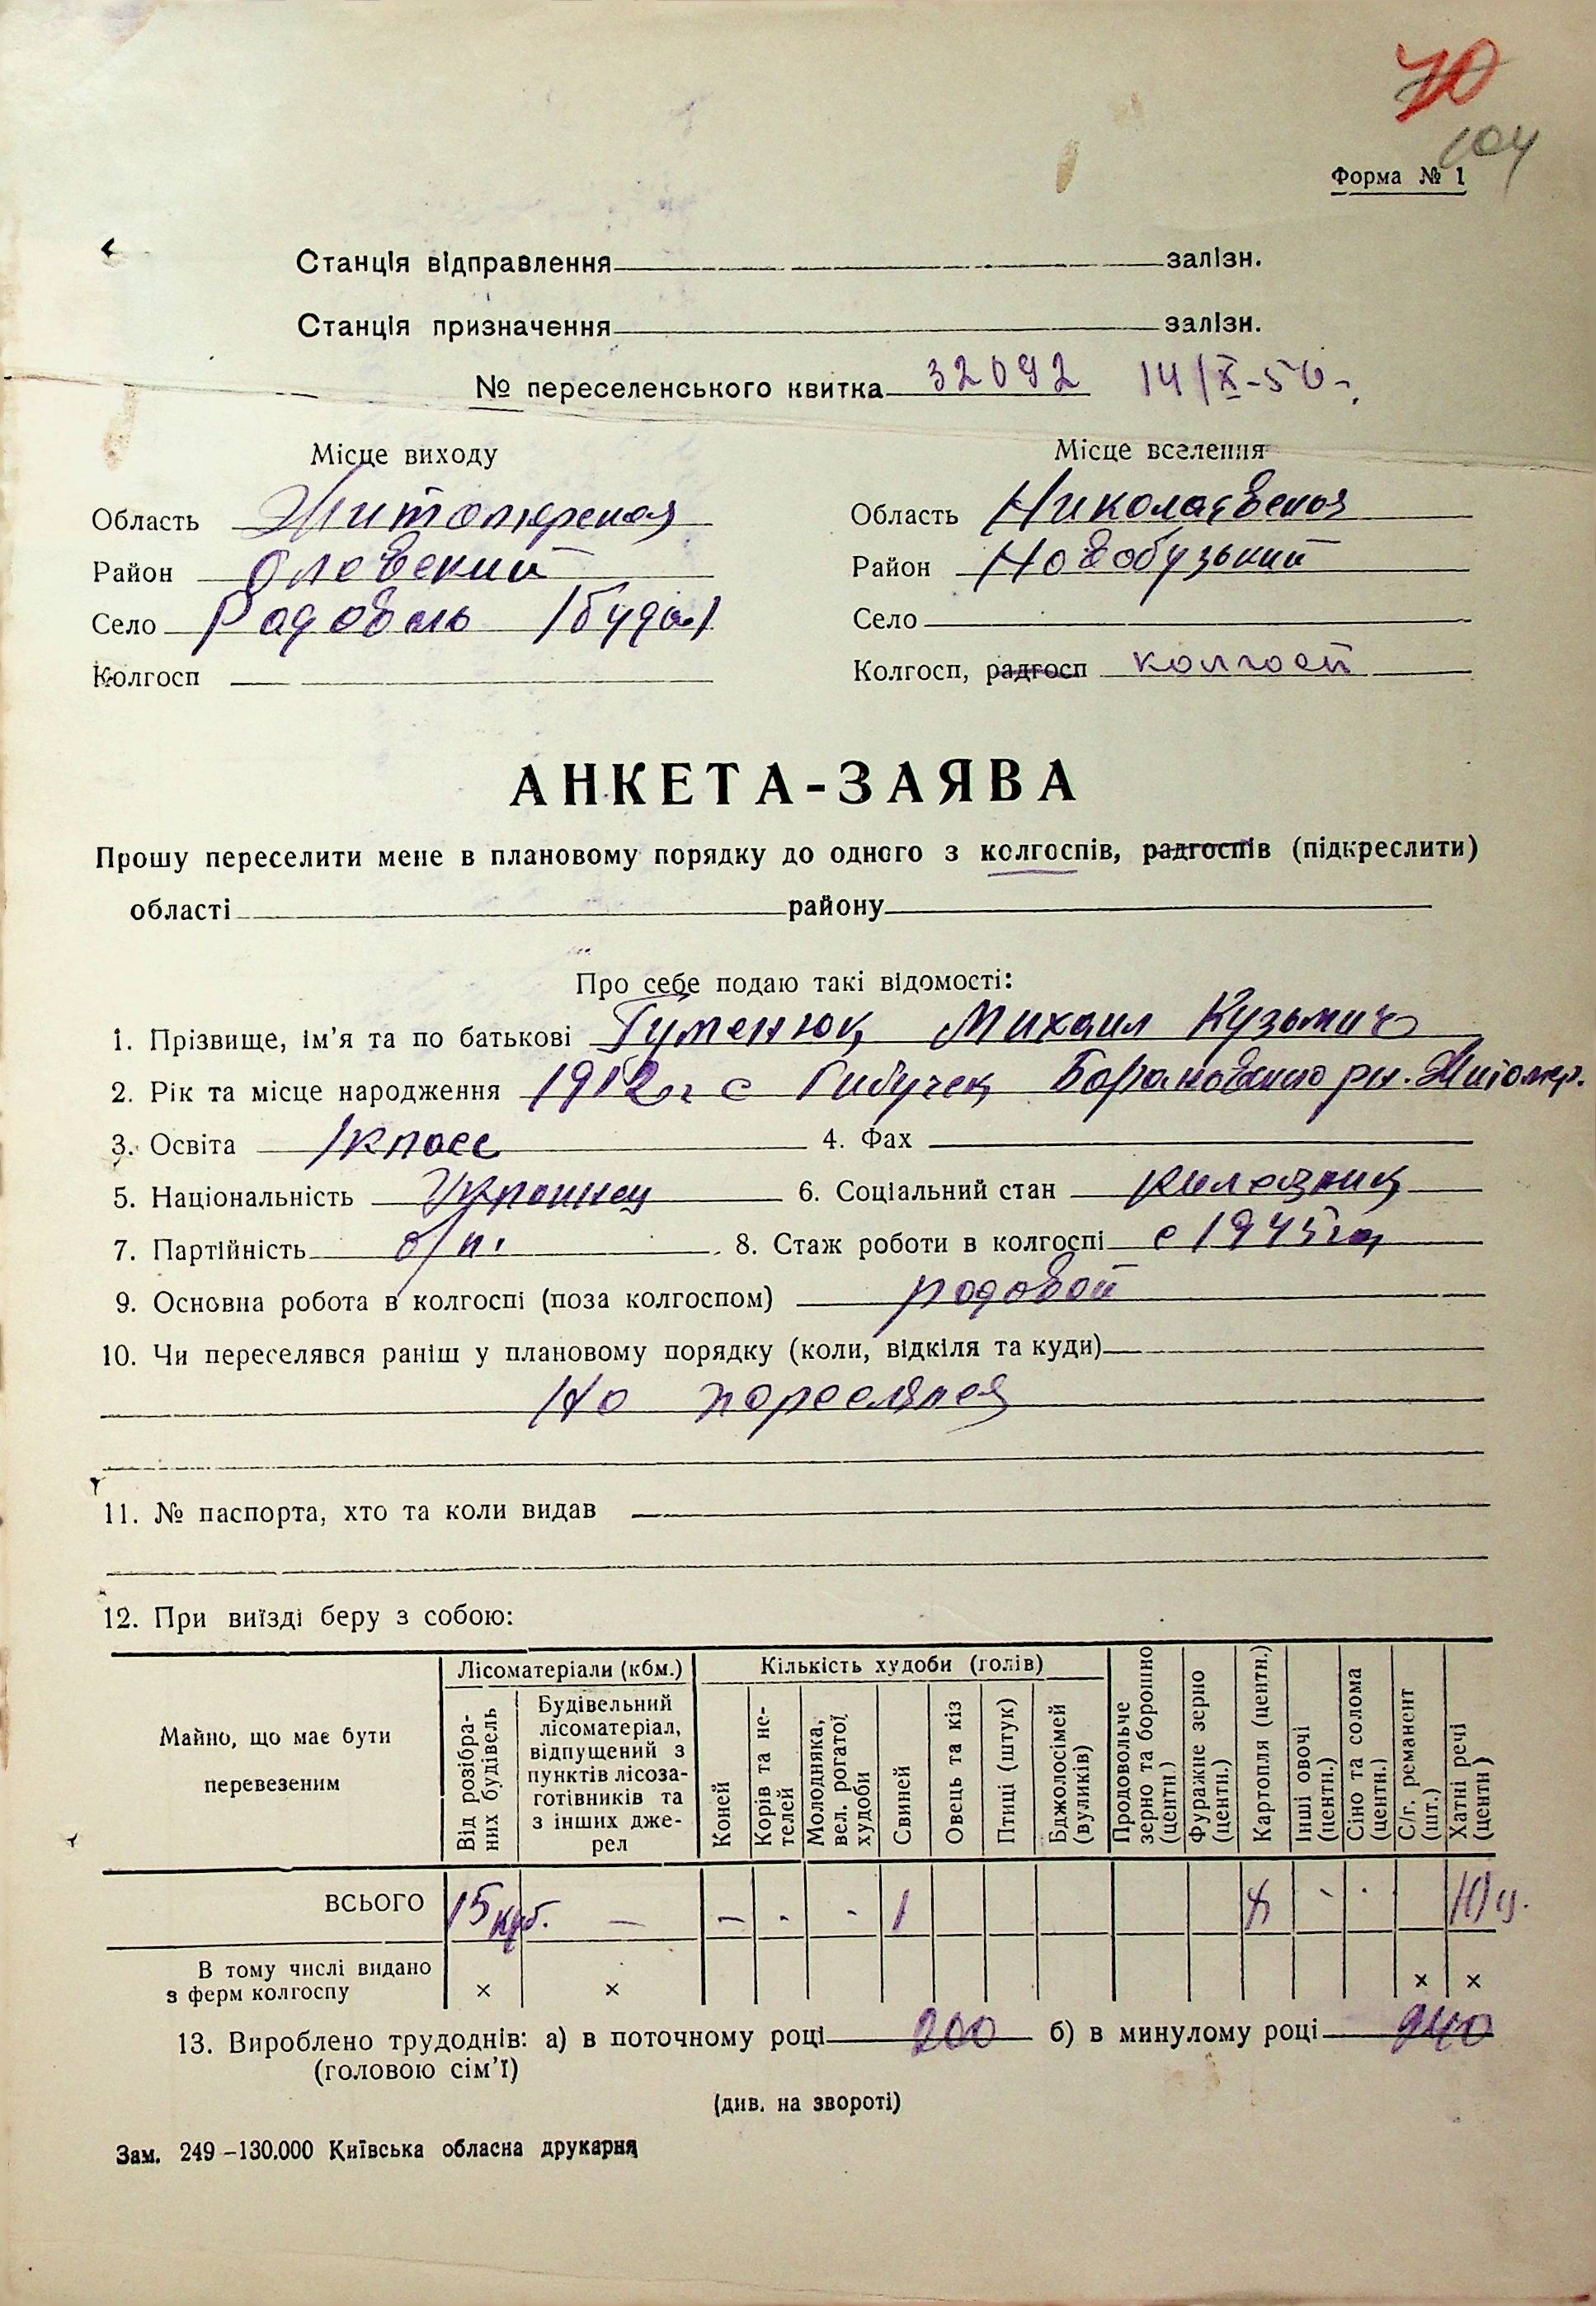 70
104
Форма № 1
Станція відправлення залізн.
Станція призначення залізн.
№ переселенського квитка 32092 14/X-50
Місце виходу
Область Житомирская
Район Олевский
Село Радовель /буда/
Колгосп
Місце вселення
Область Николаевская
Район Новобузький
Село
Колгосп, радгосп колгосп
АНКЕТА-ЗАЯВА
Прошу переселити мене в плановому порядку до одного з колгоспів, радгоспів (підкреслити)
області району
Про себе подаю такі відомості:
1. Прізвище, ім'я та по батькові Гуменюк Михаил Кузьмич
2. Рік та місце народження 1912 г с Барановского рн. Житомир.
3. Освіта 1 класс 4. Фах
5. Національність Украинец 6. Соціальний стан
7. Партійність б/п. 8. Стаж роботи в колгоспі с 1945 года
9. Основна робота в колгоспі (поза колгоспом) рядовой
10. Чи переселявся раніш у плановому порядку (коли, відкіля та куди)
Не переселялся
11. № паспорта, хто та коли видав
12. При виїзді беру з собою:
Майно, що має бути перевезеним
Лісоматеріали (кбм.)
Від розібраних будівель
Будівельний лісоматеріал, відпущений з пунктів лісозаготівників та з інших джерел
Кількість худоби (голів)
Коней
Корів та нетелей
Молодняка, вел. рогатої худоби
Свиней
Овець та кіз
Птиці (штук)
Бджолосімей (вуликів)
Продовольче зерно та борошно (центн.)
Фуражне зерно (центн.)
Картопля (центн.)
Інші овочі (центн.)
Сіно та солома (центн.)
С/г. реманент (шт.)
Хатні речі (центн.)
ВСЬОГО 15 куб. — – - - 1 - · 10 ц.
В тому числі видано з ферм колгоспу × × × ×
13. Вироблено трудоднів: а) в поточному році 200 б) в минулому році 240
(головою сім'ї)
(див. на звороті)
Зам. 249–130.000 Київська обласна друкарня